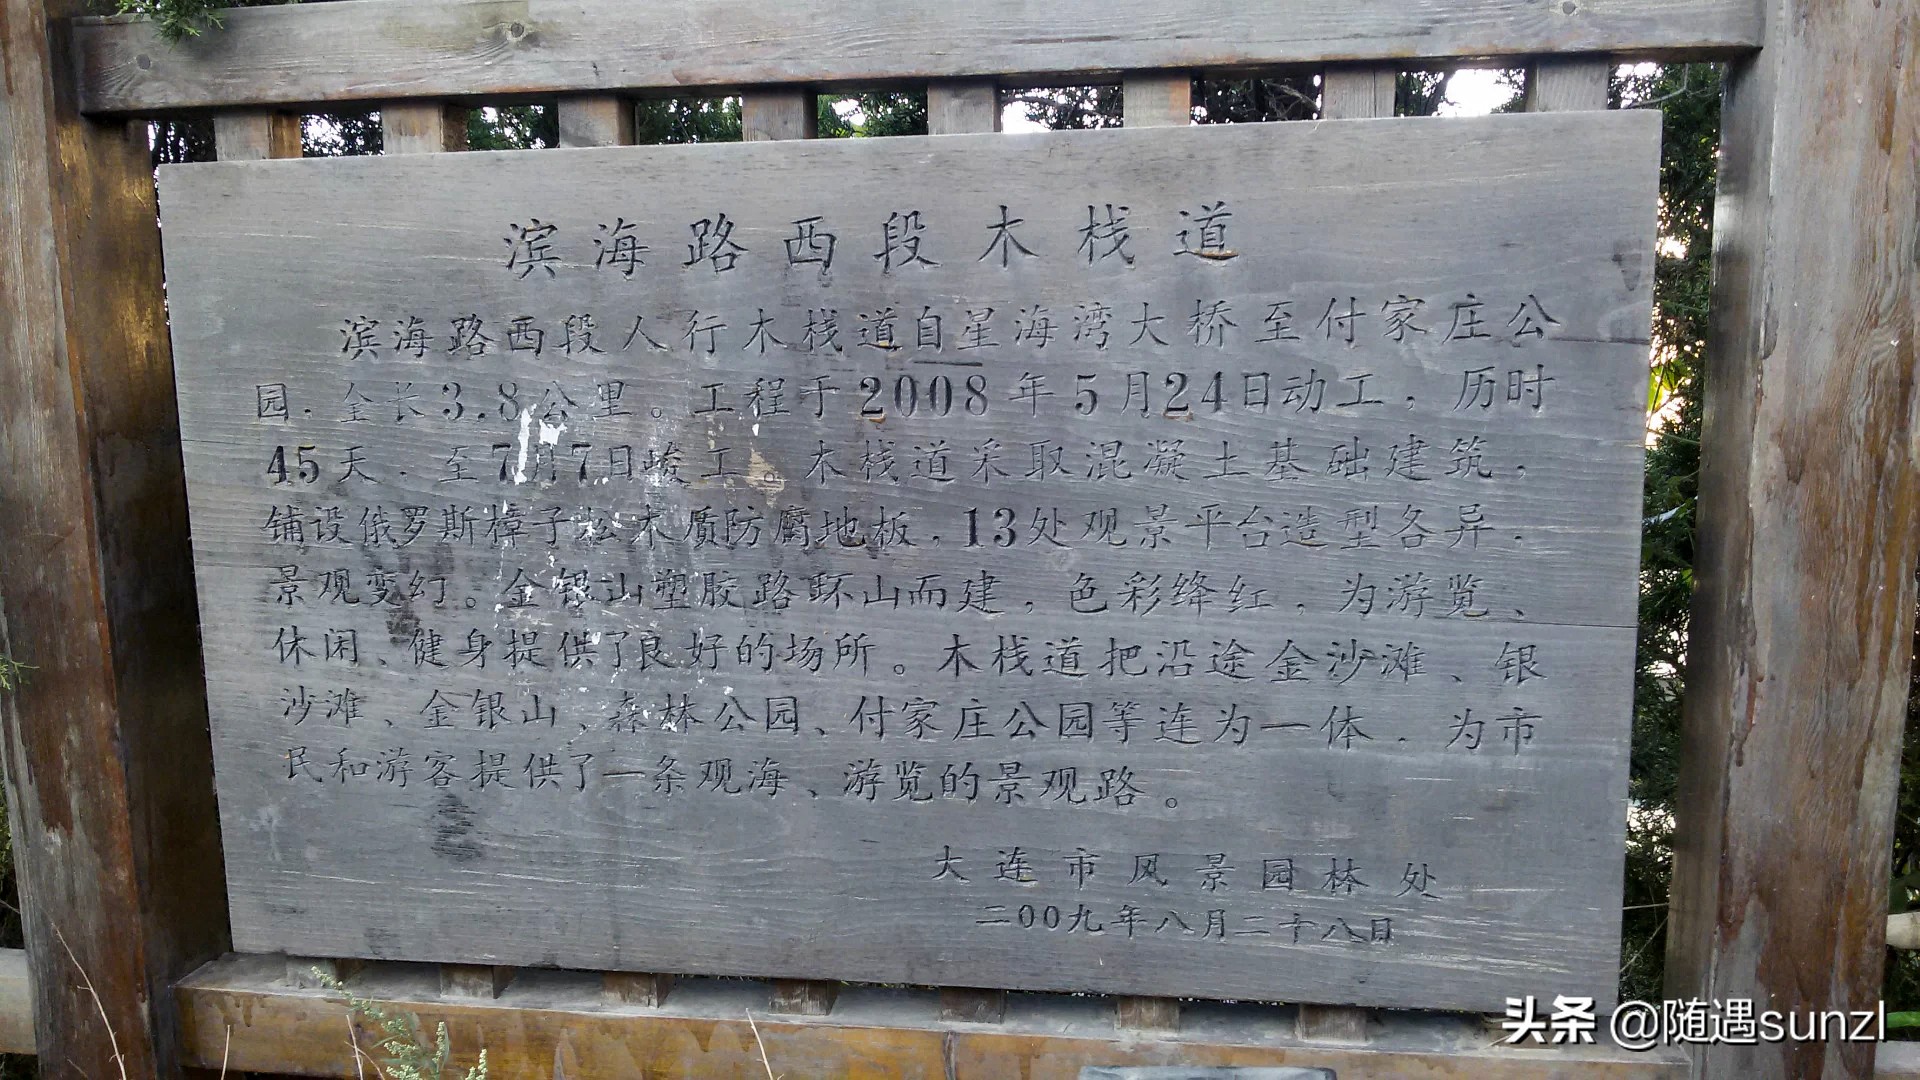 滨海路西段木栈道
滨海路西段人行木栈道自星海湾大桥至付家庄公
园．全长3.8公里。工程于2008年5月24日动工，历时
45天．至7月7日峻工。木栈道采取混凝土基础建筑，
铺设俄罗斯樟子松木质防腐地板．13处观景平台造型各异．
景观变幻。金银山塑胶路环山而建，色彩绛红，为游览、
休闲、健身提供了良好的场所。木栈道把沿途金沙滩、银
沙滩、金银山、森林公园、付家庄公园等连为一体．为市
民和游客提供了一条观海、游览的景观路。
大连市风景园林处
二00九年八月二十八日
头条 @随遇sunzl